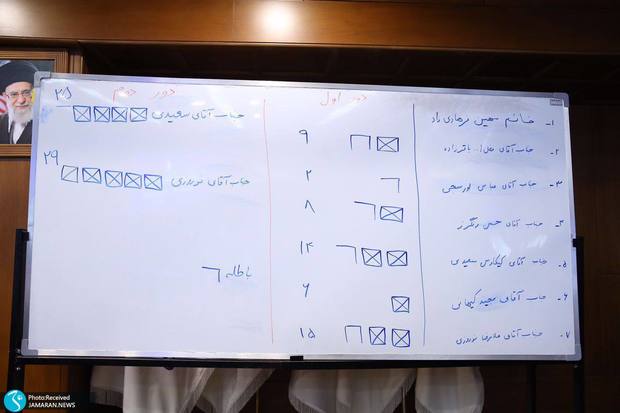 دور اول
۱- خانم
۲- جناب آقای باقرزاده
۹
۳- جناب آقای عباس
۲
۴- جناب آقای حسن رنگرز
۸
۵- جناب آقای کیکاوس سعیدی
۱۴
۶- جناب آقای مجید کیهانی
۶
۷- جناب آقای علیرضا نوروزی
۱۵
دور دوم
جناب آقای سعیدی
جناب آقای نوروزی
۲۹
باطله
Photo:Received
JAMARAN.NEWS